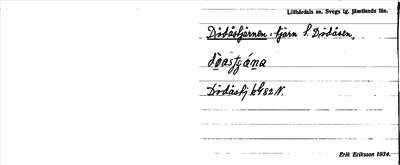 Lillhärdals sn. Svegs tg. Jämtlands län.
Dödåstjärnen, tjärn S. Dödåsen.
Dödåstj bl 82 N.
Erik Eriksson 1934.